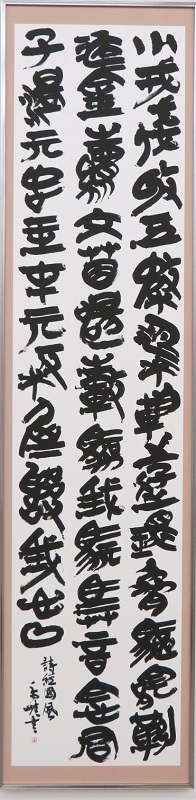 小戎俴收五楘梁輈游環脅驅陰靷
鋈續文茵暢轂駕我騏馵言念君
子溫亓如玉在亓板屋亂我心曲
詩經國風
書